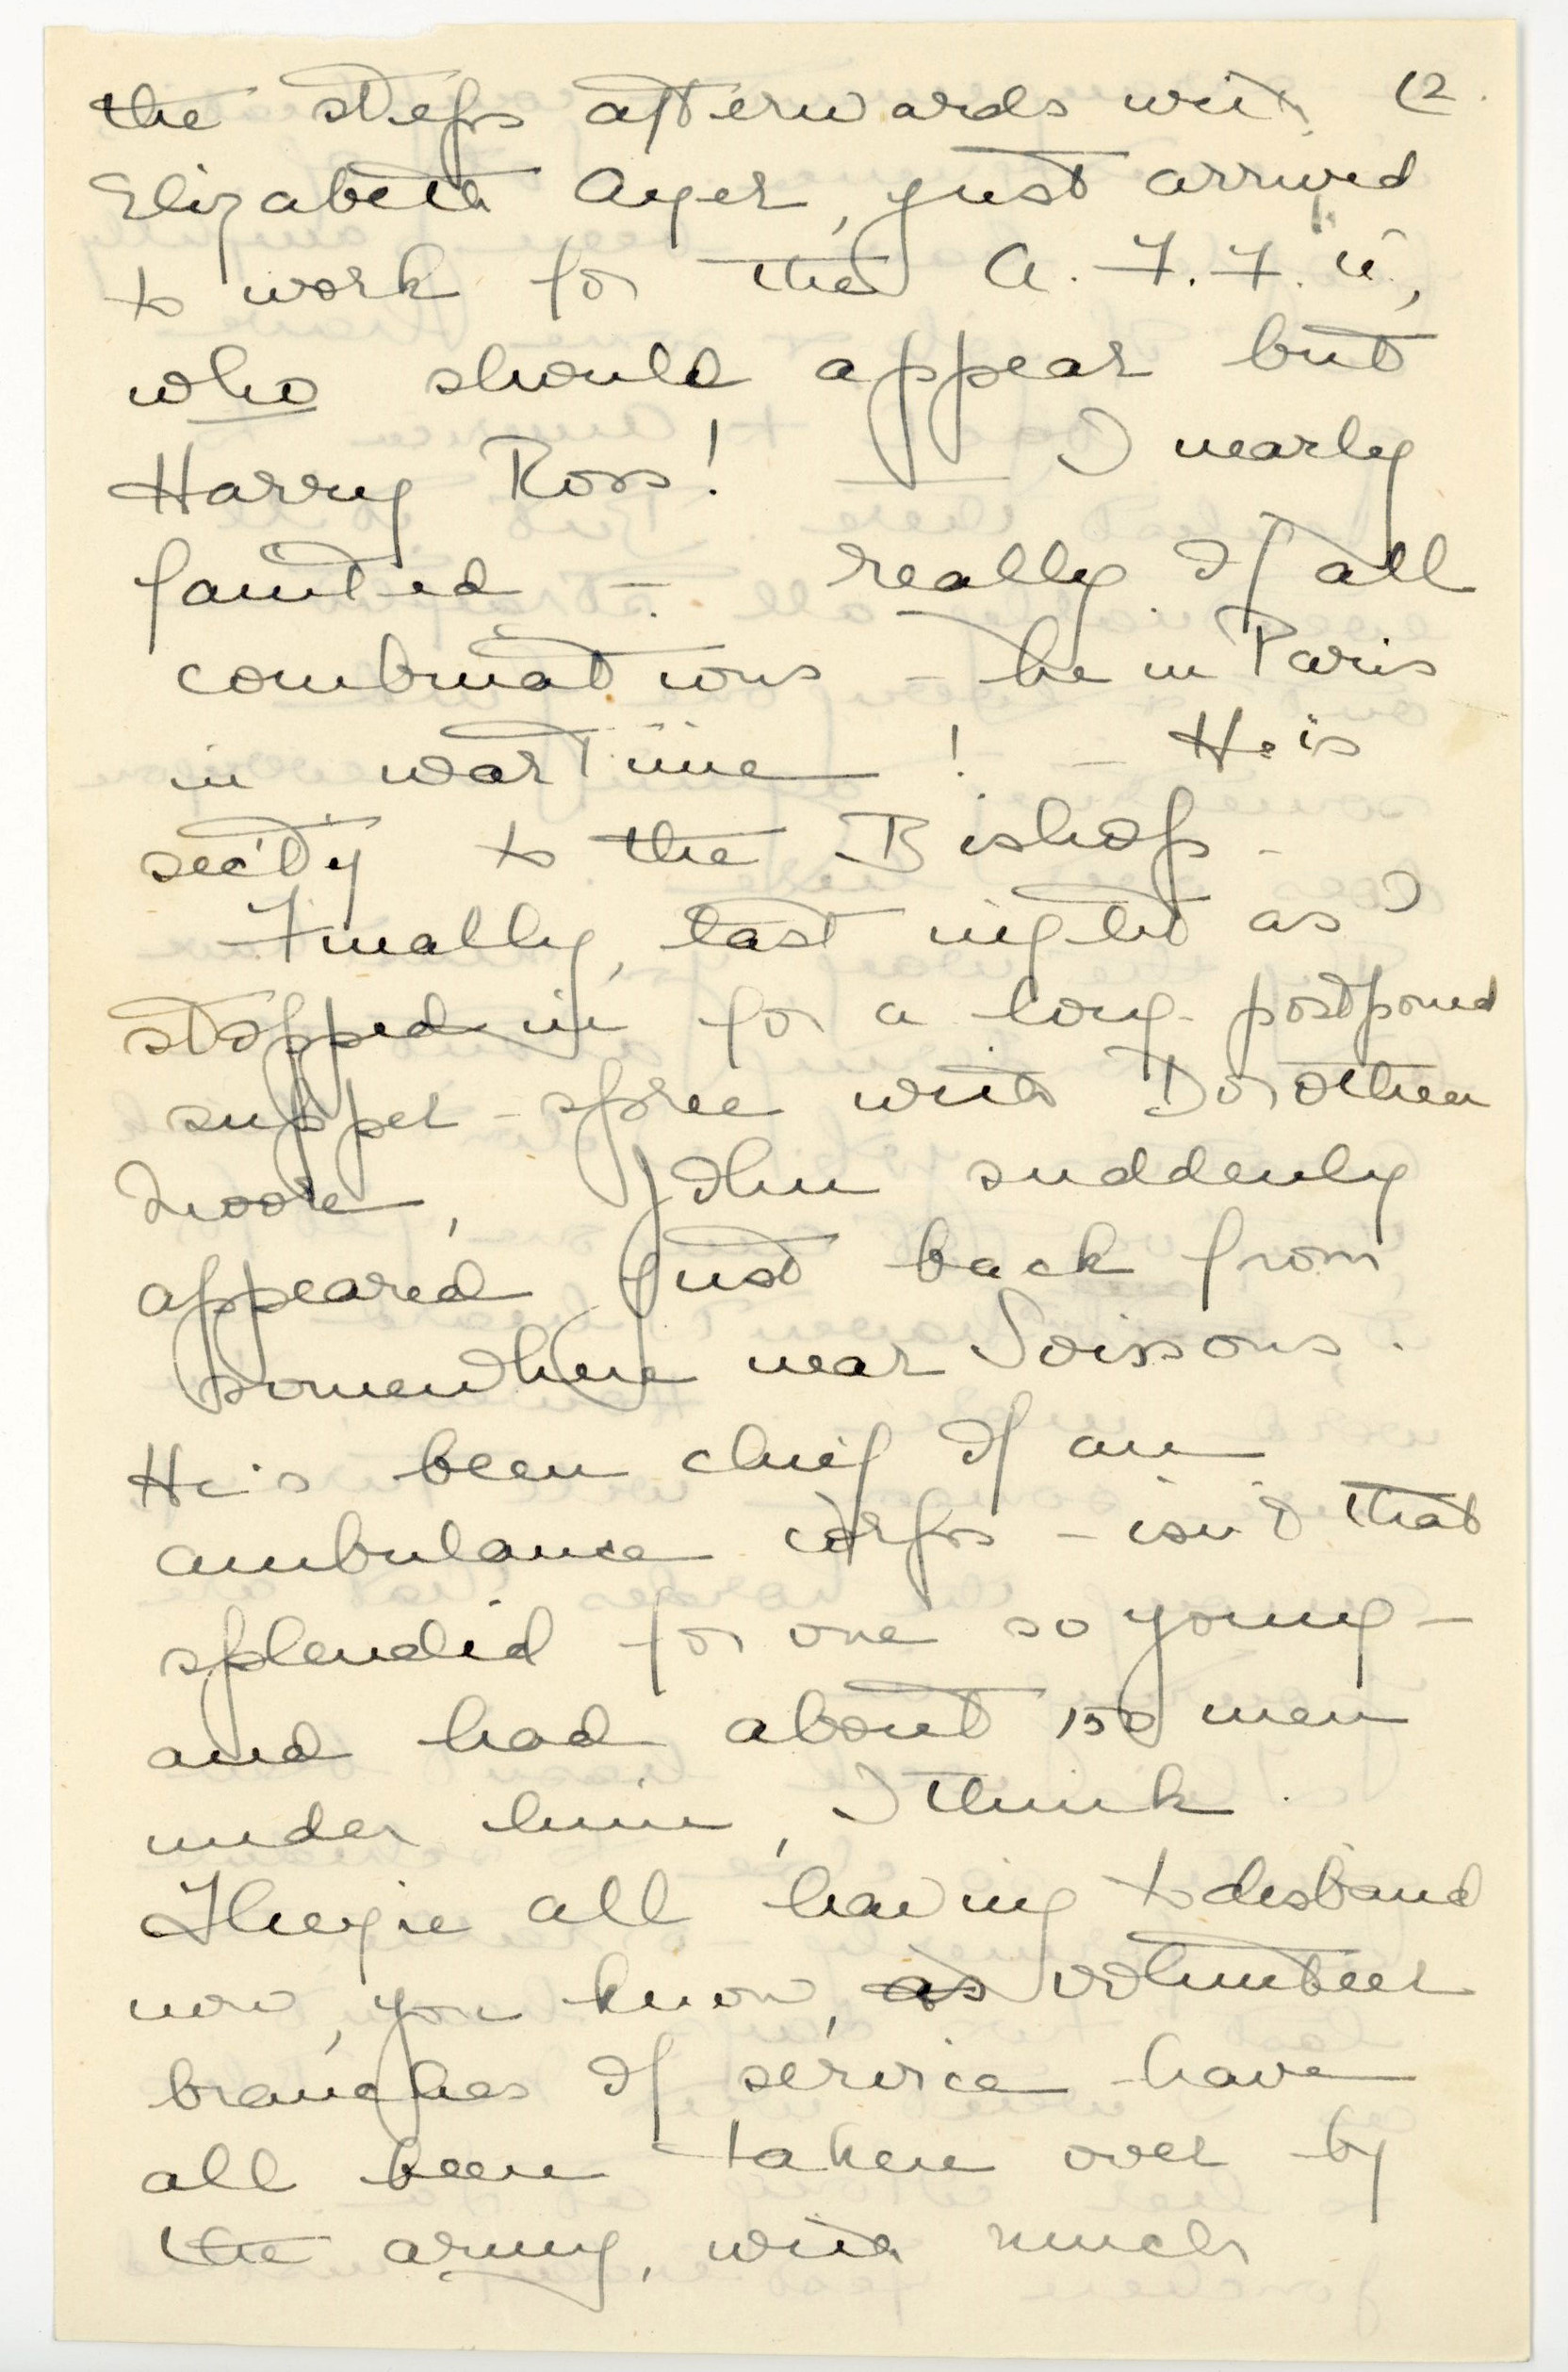 the steps afterwards with 12.
Elizabeth Ayer, just arrived
to work for the "A. F. F. W",
who should appear but
Harry Ross! — I nearly
fainted —. really of all
combinations — he in Paris
in wartime! — He is
sec'ty to the Bishop —
Finally, last night as I
stopped in for a long-postponed
supper-spree with Dorothea
Moore, John suddenly
appeared just back from
somewhere near Soissons.
He's been chief of an
ambulance corps — isn't that
splendid for one so young —
and had about 150 men
under him, I think.
They're all having to disband
now, you know, as volunteer
branches of service have
all been taken over by
the army, with much